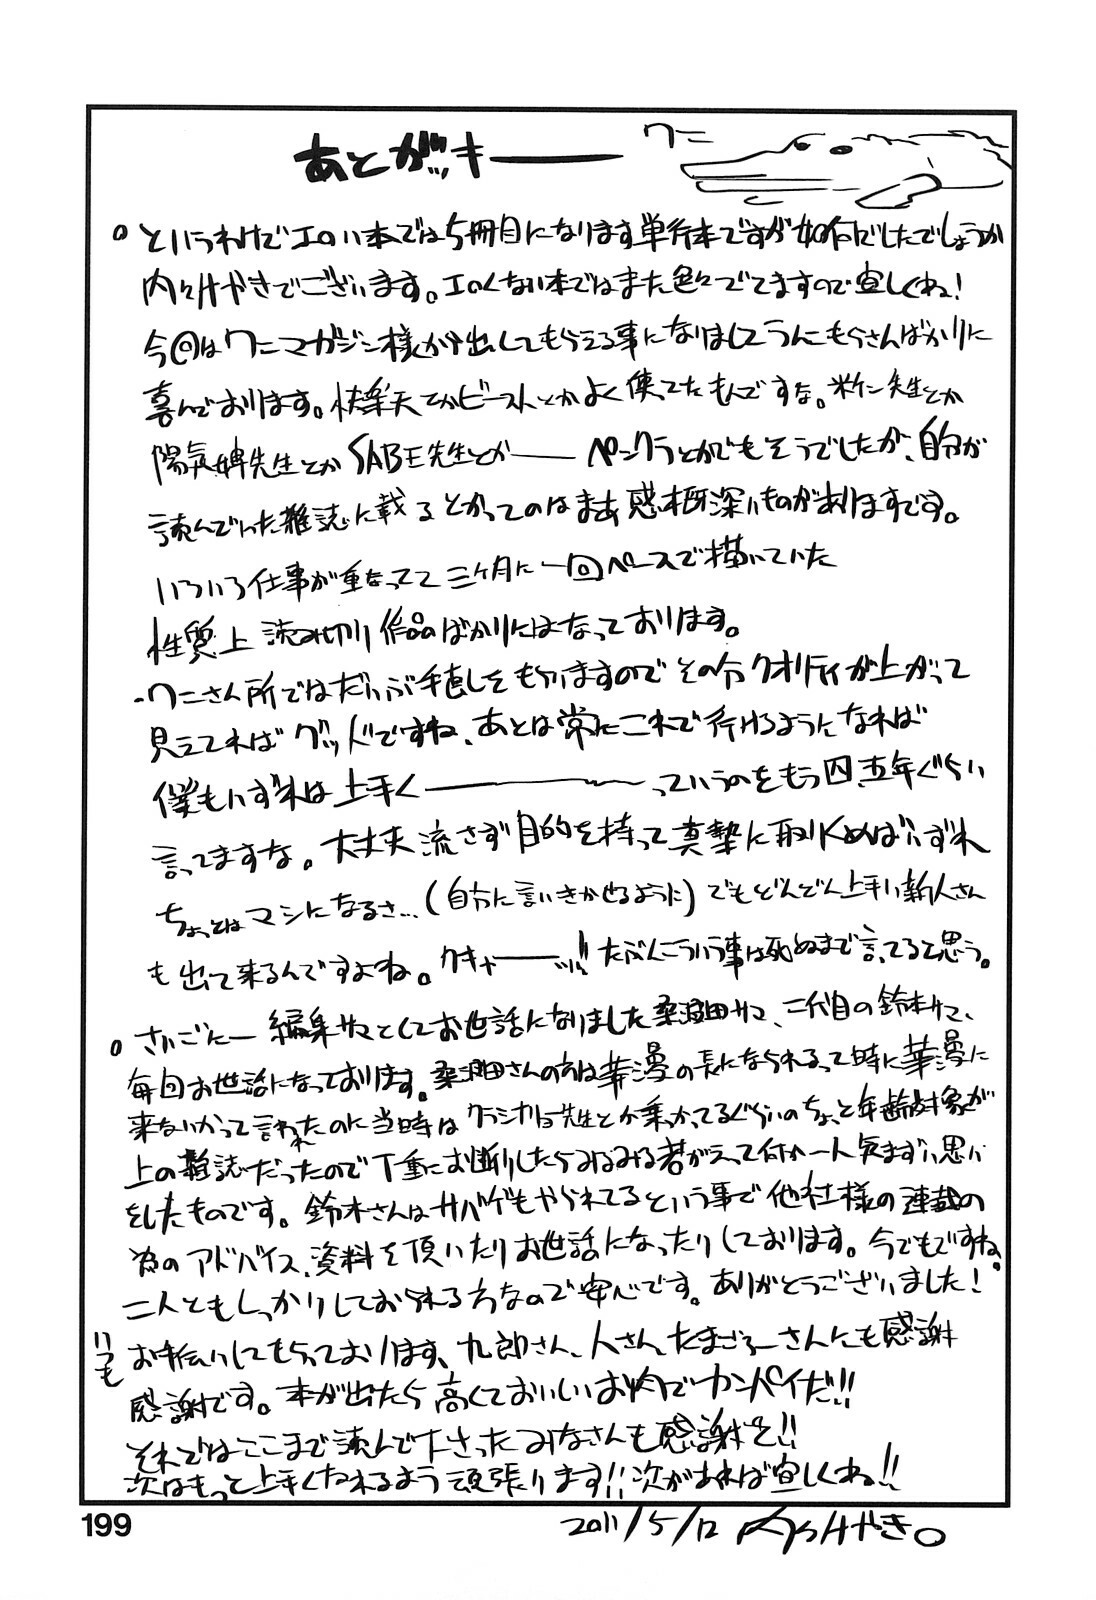 あとがッキーーー
ワニ
。というわけでエロい本では5冊目になります単行本ですが如何でしたでしょうか
内々けやきでございます。エロくない本ではまた色々でてますので宜しくね!
今回はワニマガジン様から出してもらえる事になりましてうんこもらさんばかりに
喜んでおります。快楽天とかビーストとかよく使ってたもんですな。米仁先生とか
陽気婢先生とかSABE先生とか―― ペンクラとかでもそうでしたが、自分が
読んでいった雑誌に載るとかってのはまあ感概深いものがありますです。
いろいろ仕事が重なってて三ヶ月に一回ペースで描いていた
性質上読み切り作品ばかりにはなっております。
・ワニさん所ではだいぶ手直しをもらいますのでその分クオリティが上がって
見えてればグッドですね、あとは常にこれで行けるようになれば
僕もいずれは上手く――――っていうのをもう四、五年ぐらい
言ってますな。大丈夫流さず目的を持って真摯に取り込めばいずれ
ちょっとはマシになるさ…(自分に言いきかせるように)でもどんどん上手い新人さん
も出て来るんですよね。クキャーーーッ!!たぶんこういう事は死ぬまで言ってると思う。
。さいごにー 編集サマとしてお世話になりました桑沼田サマ、二代目の鈴木サマ、
毎回お世話になっております。桑沼田さんの方は華漫の長になられるって時に華漫に
来ないかって言われたのに当時はクラシカロ先生とか乗っかってるぐらいのちょっと年齢対象が
上の雑誌だったので丁重にお断りしたらみるみる若がえって何か一人気まずい思い
をしたものです。鈴木さんはサバゲもやられてるという事で他社様の連載の
為のアドバイス、資料を頂いたりお世話になったりしております。今でもですね。
二人ともしっかりしておられる方なので安心です。ありがとうございました!
いつも
お手伝いしてもらっております、九郎さん、人さん、たまごろーさんにも感謝
感謝です。本が出たら高くておいしいお肉でカンパイだ!!
それではここまで読んで下さったみなさんも感謝を!!
次はもっと上手くなれるよう頑張ります!!次があれば宜しくね!!
199
2011/5/12 内々けやき。